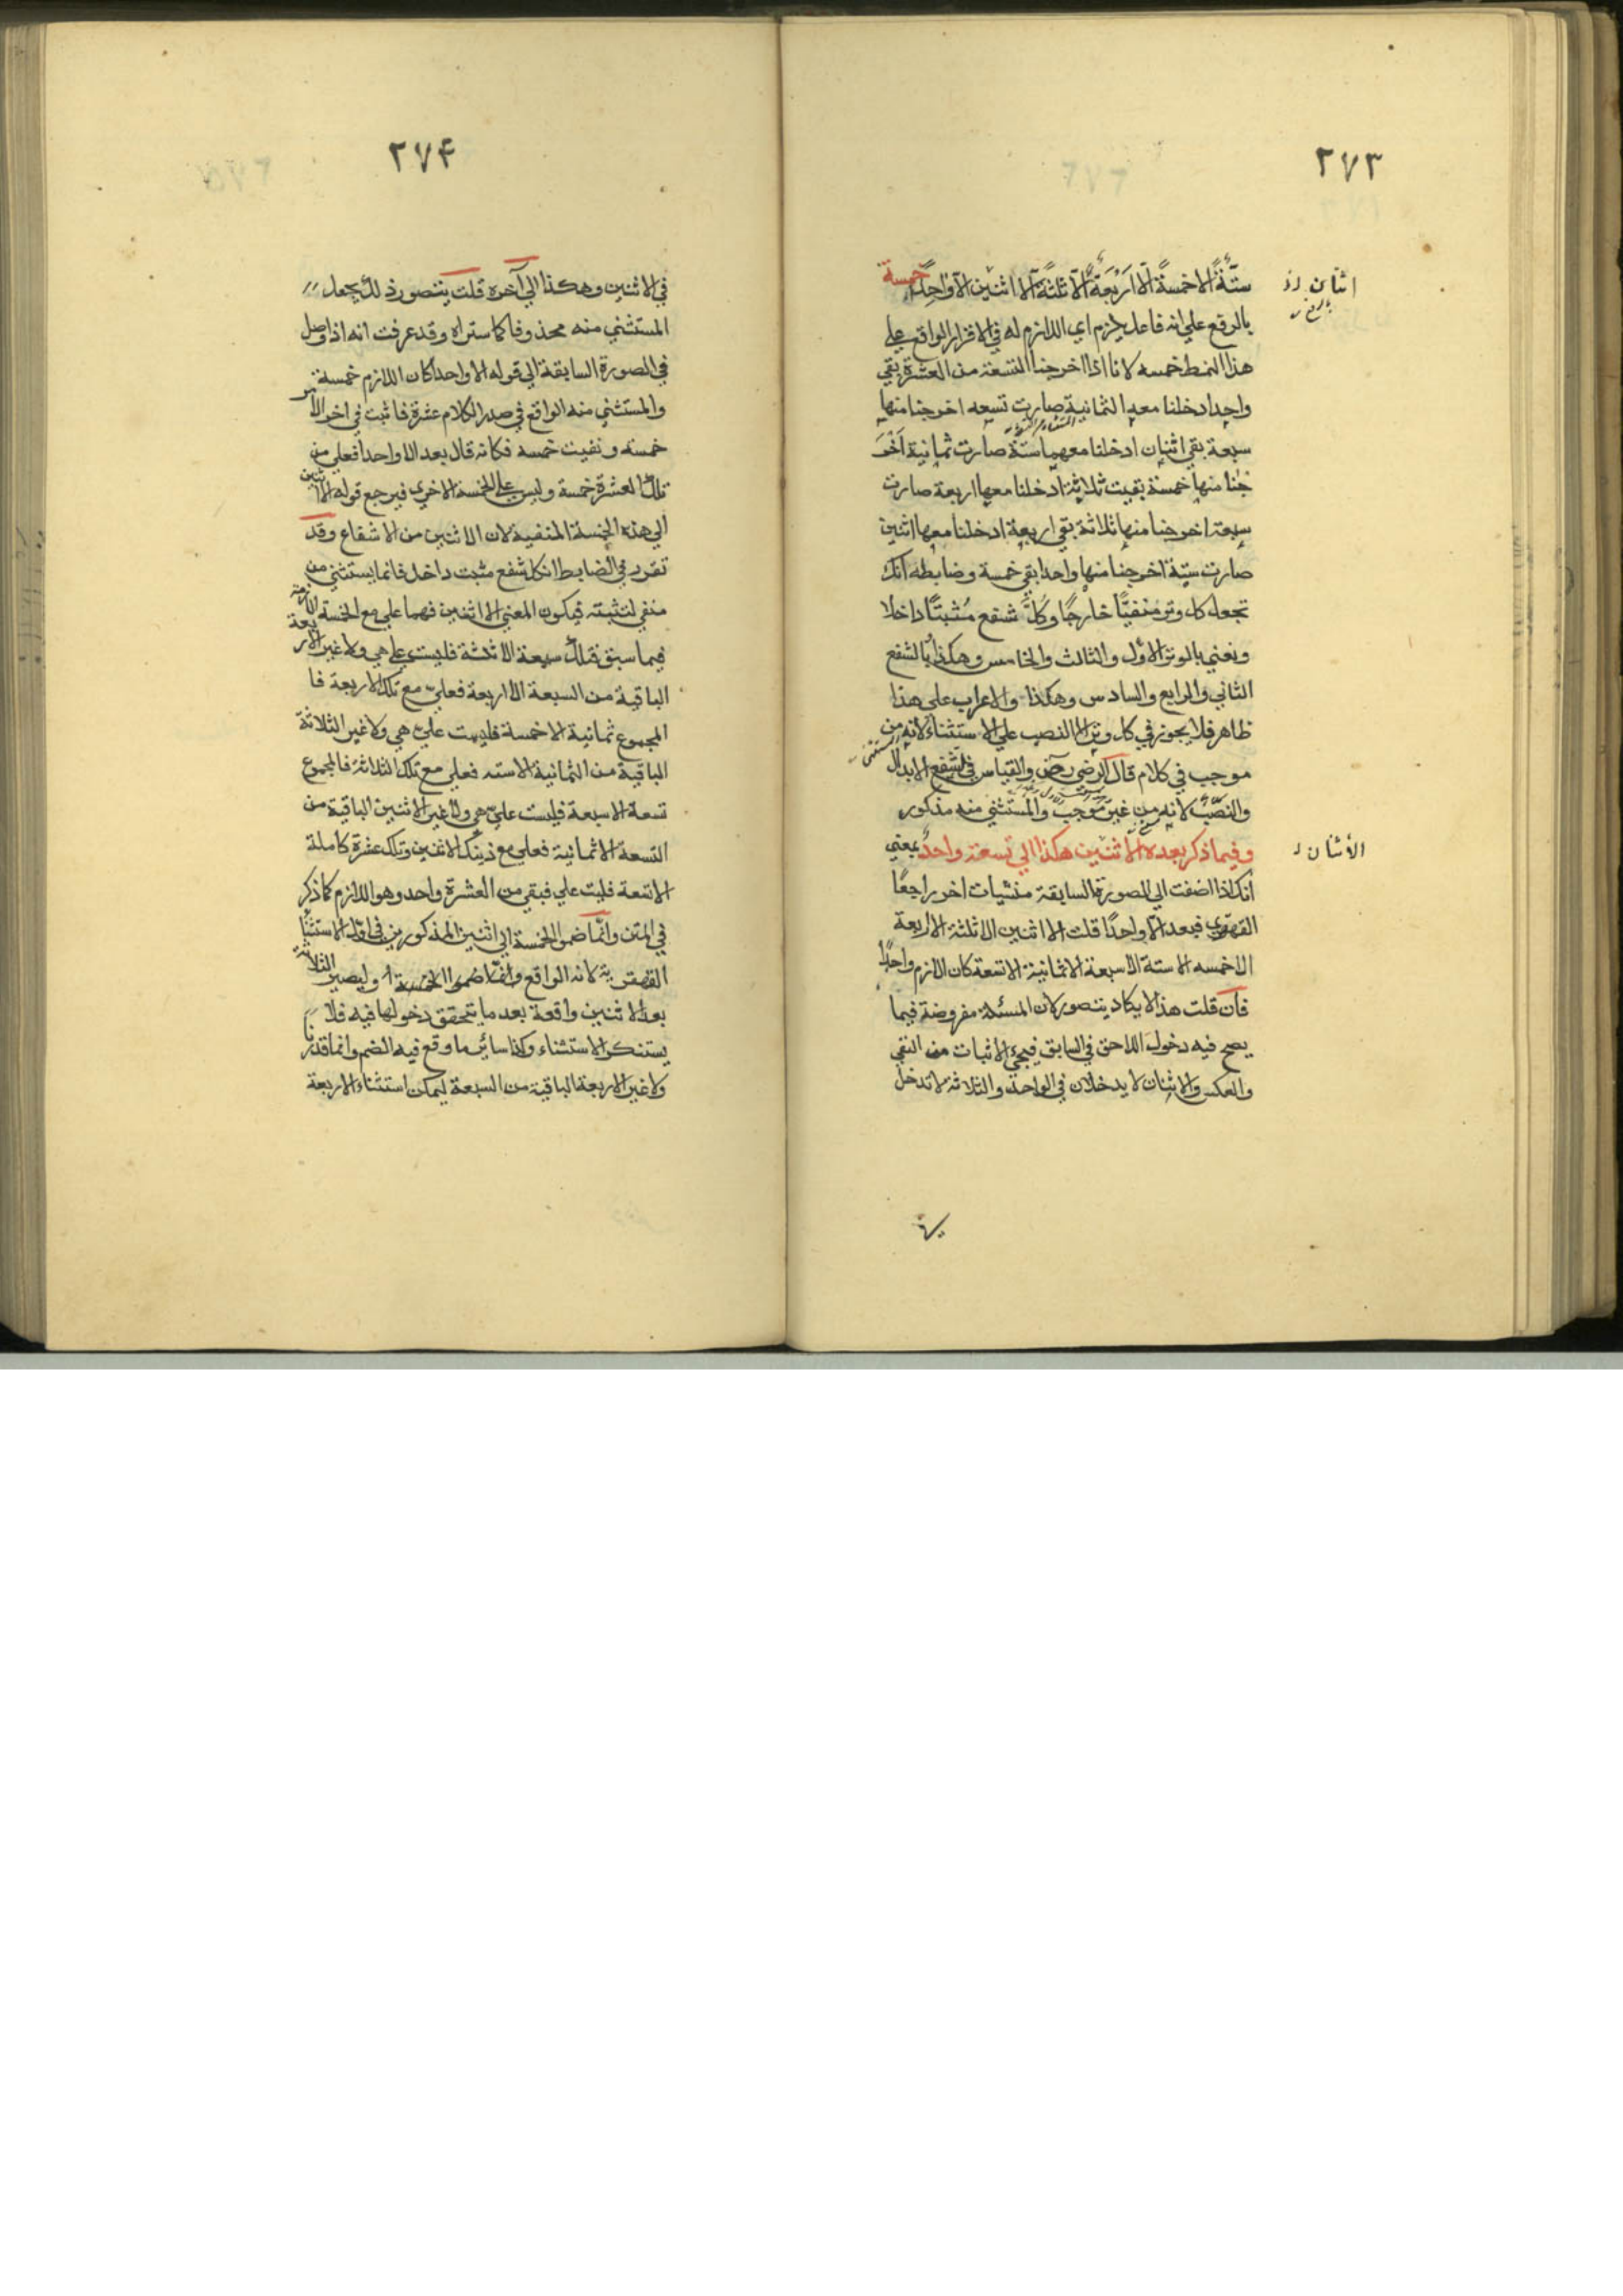 ٢٧٣
ستةٌ الا خمسةً الا اربعةٌ الا ثلثةً الا اثنين الا واحدًا خمسة
اثنان
بالرفع
بالرفع على انه فاعل يلزم اي اللازم له في الاقرار الواقع على
هذا النمط خمسه لانا اذا اخرجنا التسعة من العشرة بقي
واحد ادخلنا معه الثمانية صارت تسعه اخرجنا منها
سبعة بقي اثنان ادخلنا معهما ستة صارت ثمانية اخر
جنا منها خمسة بقيت ثلاثة ادخلنا معها اربعة صارت
سبعة اخرجنا منها ثلاثة بقي اربعة ادخلنا معها اثنين
صارت ستة اخرجنا منها واحدا بقي خمسة وضابطه انك
تجعل كل وتر منفيًا خارجًا وكلَّ شفع مُثبتًا داخلا
ونعني بالوتر الاول والثالث والخامس وهكذا وبالشفع
الثاني والرابع والسادس وهكذا والاعراب على هذا
ظاهر فلا يجوز في كل وتر الا النصب على الاستثناء لانه من
موجب في كلام قال الرضي رض والقياس في الشفع الابدال
والنصب لانه من غير موجب والمستثني منه مذكور
وفيما ذكر بعده الا اثنين هكذا الي تسعة واحدٌ يعني
الاثنان
انك اذا اضفت الي الصورة السابقة منشيات اخر راجعًا
القهقري فبعد الا واحدًا قلت الا اثنين الا ثلثة الا اربعة
الا خمسه الا ستة الا سبعة الا ثمانية الا تسعة كان اللازم واحدًا
فان قلت هذا لا يكاد يتصور لان المسئلة مفروضة فيما
يصح فيه دخول اللاحق في السابق فيجئ الاثبات من النفي
والعكس والاثنان لا يدخلان في الواحد والثلاثة لا تدخل
٢٧۴
في الاثنين وهكذا الي آخره قلت يتصور ذلك بجعل
المستثني منه محذوفا كما ستراه وقد عرفت انه اذا وصل
في الصورة السابقة الي قوله الا واحدا كان اللازم خمسة
والمستثني منه الواقع في صدر الكلام عشرة فاثبت في اخر الامر
خمسه ونفيت خمسه فكانه قال بعد الا واحدا فعلي من
تلك العشرة خمسة وليس علي الخمسة الاخرى فيرجع قوله الا اثنين
الي هذه الخمسة المنفية لان الاثنين من الاشفاع وقد
تقرر في الضابط ان كل شفع مثبت داخل فانما يستثني من
منفي لتثبته فيكون المعني الا اثنين فهما علي مع الخمسة اللازمة
فيما سبق فتلك سبعة الا ثلثة فليست علي هي ولا غير الاربعة
الباقية من السبعة الا اربعة فعليّ مع تلك الاربعة فا
المجموع ثمانية الا خمسة فليست عليّ هي ولا غير الثلاثة
الباقية من الثمانية الا سته فعلي مع تلك الثلاثة فالمجموع
تسعة الا سبعة فليست عليّ هي ولا غير الاثنين الباقية من
التسعة الا ثمانية فعلي مع ذينك الاثنين وتلك عشرة كاملة
الا تسعة فليت علي فبقي من العشرة واحد وهو اللازم كما ذكر
في المتن وانّما ضموا الخمسة الي اثنين المذكورين في اوّل الاستثنا
القهقرية لانه الواقع وانّما ضموا الخمسة اولا ليصير الثلاثة
بعد الاثنين واقعة بعد ما يتحقق دخولها فيه فلا
يستنكر الاستثناء وكذا سائر ما وقع فيه الضم وانما قدرنا
ولا غير الاربعة الباقية من السبعة ليمكن استثناء الاربعة